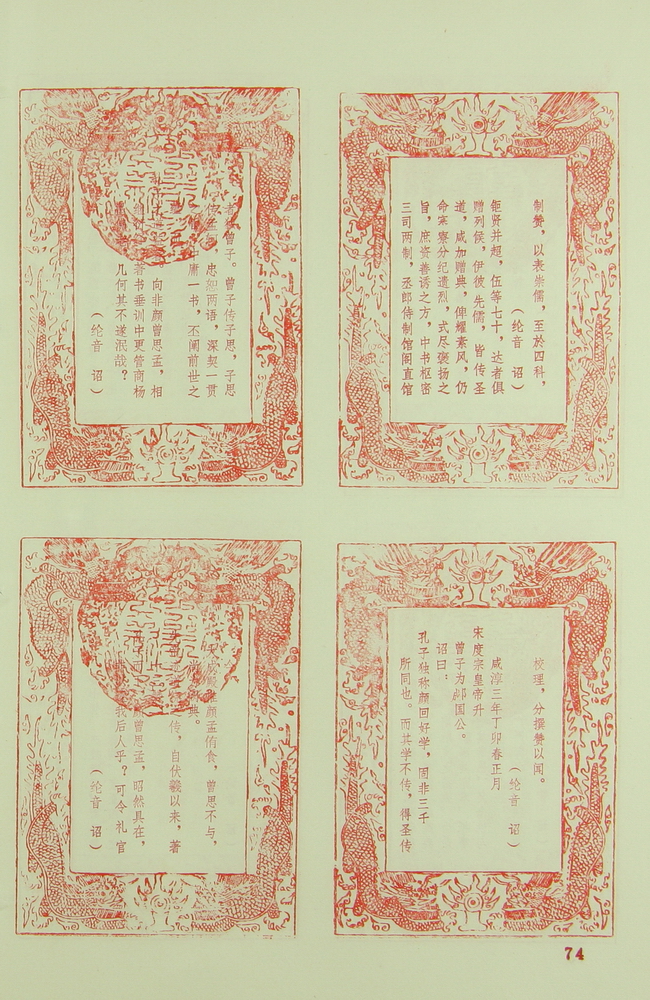 制赞，以表崇儒，至於四科，
（纶音 诏）
钜贤并超，伍等七十，达者俱
赠列侯，伊彼先儒，皆传圣
道，咸加赠典，俾耀素风，仍
命寀寮分纪遗烈，式尽褒扬之
旨，庶资善诱之方，中书枢密
三司两制，丞郎侍制馆阁直馆
校理，分撰赞以闻。
（纶音 诏）
咸淳三年丁卯春正月
宋度宗皇帝升
曾子为郕国公。
诏曰：
孔子独称颜回好学，固非三千
所同也。而其学不传，得圣传
曾子。曾子传子思，子思
忠恕两语，深契一贯
庸一书，丕阐前世之
向非颜曾思孟，相
著书垂训中更管商杨
几何其不遂泯哉？
（纶音 诏）
颜孟侑食，曾思不与，
典。
传，自伏羲以来，著
颜曾思孟，昭然具在，
我后人乎？可令礼官
（纶音 诏）
74